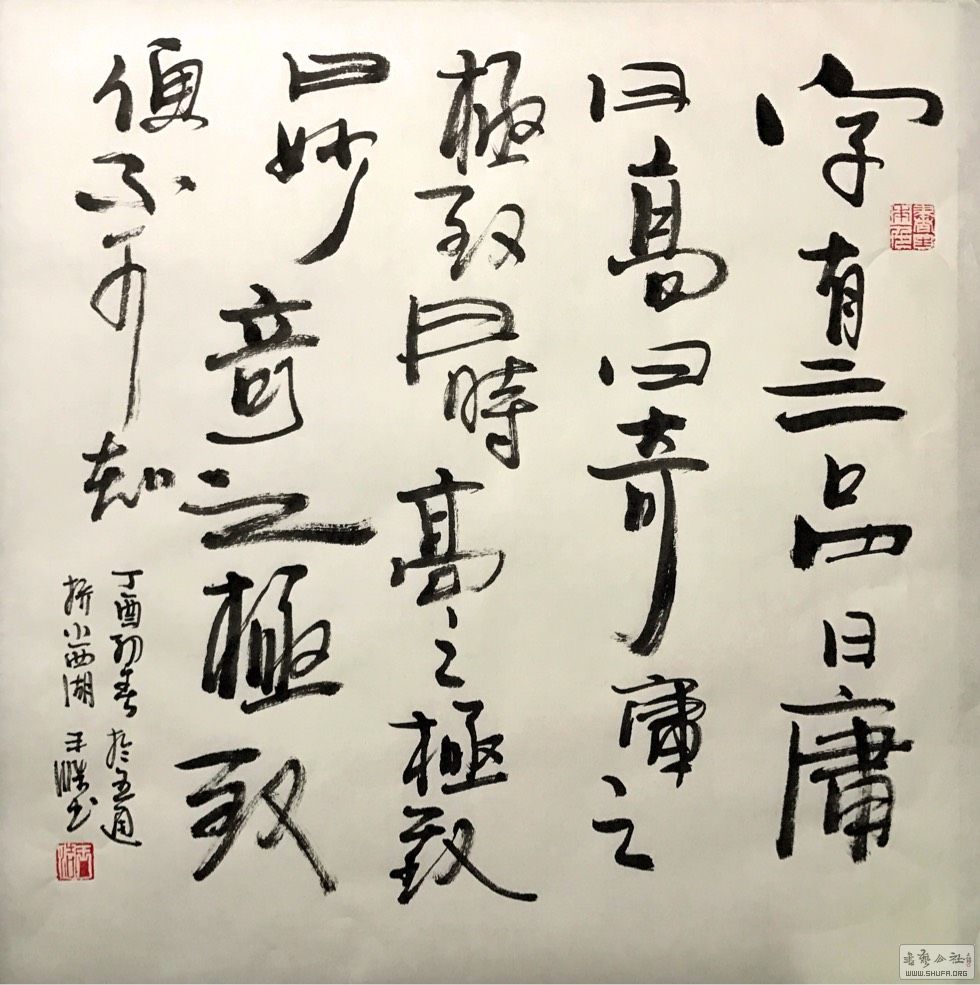 字有三品曰庸
曰高曰奇庸之
極致曰時高之極致
曰妙奇之極致
便不可知
丁酉初春於五通
橋小西湖
書藝公社
WWW.SHUFA.ORG